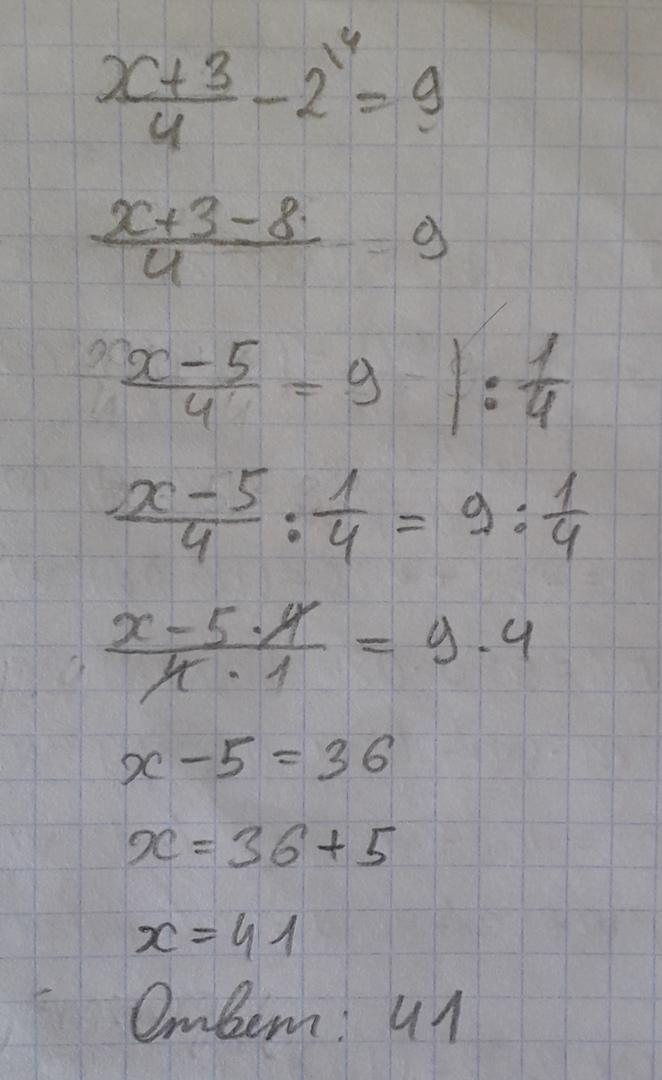 x+3/4 - 2^\4 = 9
x+3-8/4 = 9
x-5/4 = 9 | : 1/4
x-5/4 : 1/4 = 9 : 1/4
x-5·4/4·1 = 9·4
x-5=36
x=36+5
x=41
Ответ: 41